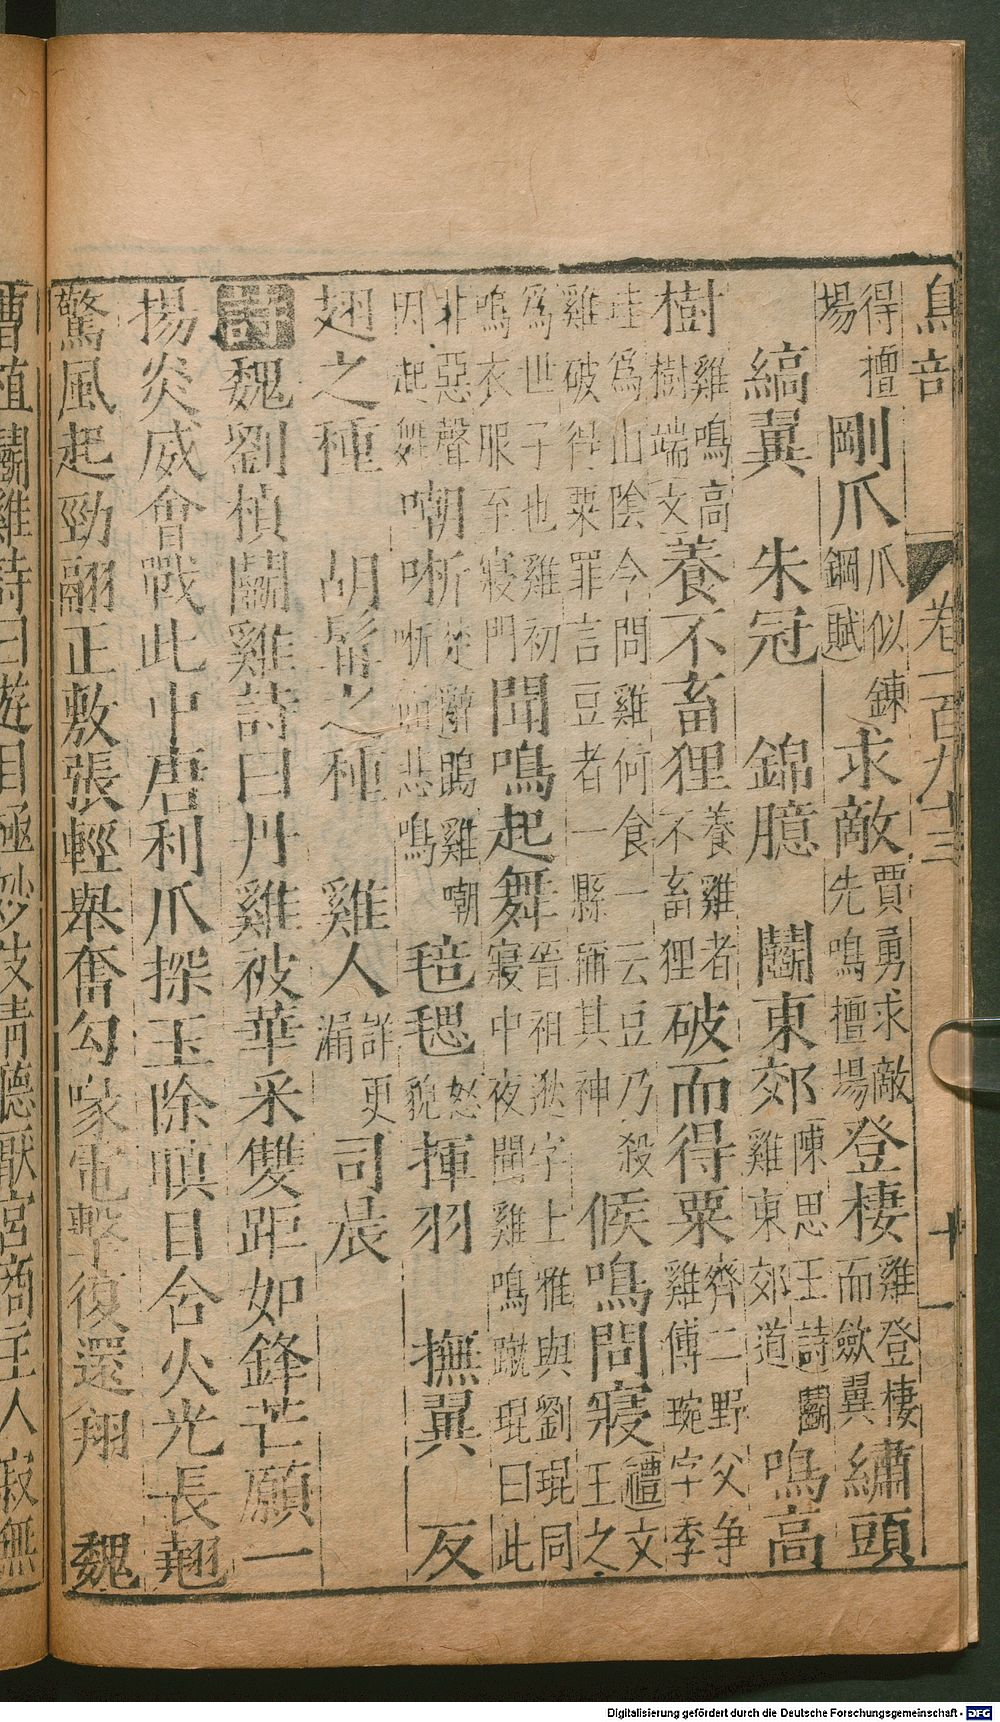 鳥部 卷一百九十三 十一
得擅場 剛爪 爪似鍊鋼賦 求敵 賈勇求敵先鳴擅場 登棲 雞登棲而斂翼 繡頭
縞翼 朱冠 錦臆 鬭東郊 陳思王詩鬭雞東郊道 鳴高
樹 雞鳴高樹樹端文 養不畜狸 養雞者不畜狸 破而得粟 齊二野父爭雞傅琬字季
珪為山陰令問雞何食一云豆乃殺雞破得粟罪言豆者一縣稱其神 候鳴問寢 禮文王之
為世子也雞初鳴衣服至寢門 聞鳴起舞 晉祖逖字士雅與劉琨同寢中夜聞雞鳴蹴琨曰此
非惡聲因起舞 嘲哳 楚辭鵾雞嘲哳而悲鳴 毰毸 怒貌 揮羽 撫翼 反
翅之種 胡髯之種 雞人 詳更漏 司晨
詩 魏劉楨鬭雞詩曰丹雞被華采雙距如鋒芒願一
揚炎威會戰此中唐利爪探玉除嗔目含火光長翹
驚風起勁翮正敷張輕舉奮勾喙電擊復還翔 魏
曹植鬭雞詩曰遊目極妙伎清聽厭宮商主人寂無
Digitalisierung gefördert durch die Deutsche Forschungsgemeinschaft - DFG